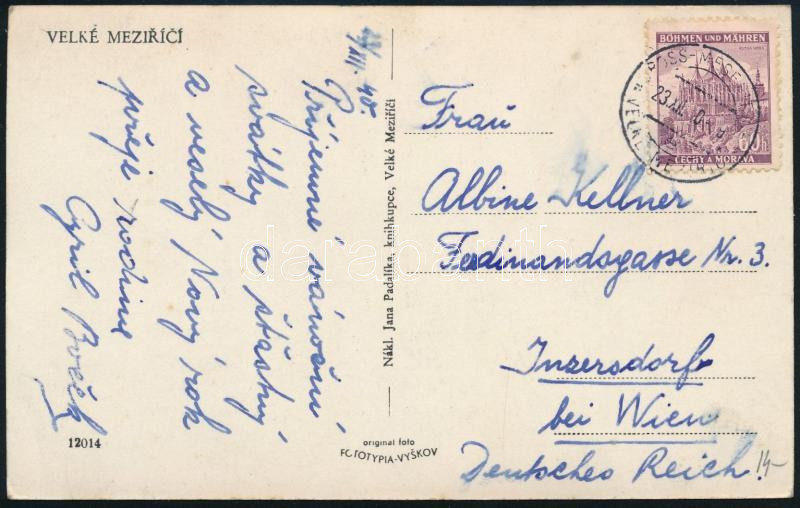 VELKÉ MEZIŘÍČÍ
/XII. 40.
Příjemné vánoční
svátky a šťastný
a veselý Nový rok
přeje rodina
Cyril Boček
12014
Nákl. Jana Padalíka, knihkupce, Velké Meziříčí
original foto
FOTOTYPIA-VYŠKOV
BÖHMEN UND MÄHREN
ČECHY A MORAVA
60h
GROSS-MESE
23.XII.40
VELKÉ MEZIŘÍČÍ
Frau
Albine Kellner
Ferdinandsgasse Nr. 3.
Inzersdorf
bei Wien
Deutsches Reich!
14-
darabanth